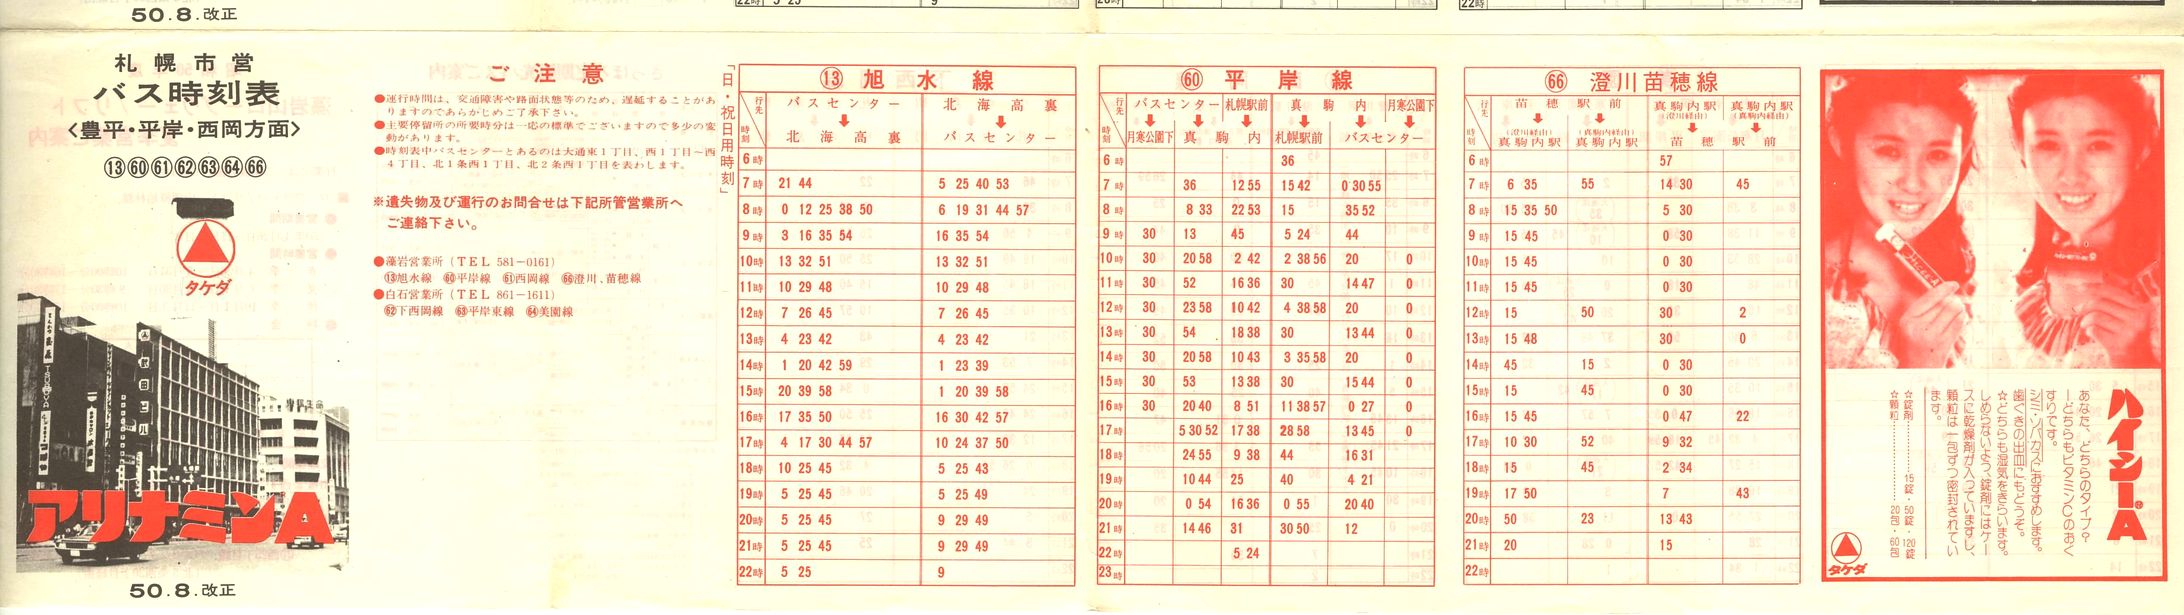 50.8.改正
22時 5 25 9
22時
札幌市営
バス時刻表
<豊平・平岸・西岡方面>
⑬60 61 62 63 64 66
タケダ
アリナミンA
50.8.改正
ご注意
●運行時間は、交通障害や路面状態等のため、遅延することがあ
りますのであらかじめご了承下さい。
●主要停留所の所要時分は一応の標準でございますので多少の変
動があります。
●時刻表中バスセンターとあるのは大通東1丁目、西1丁目〜西
4丁目、北1条西1丁目、北2条西1丁目を表わします。
※遺失物及び運行のお問合せは下記所管営業所へ
ご連絡下さい。
●藻岩営業所(TEL 581-0161)
⑬旭水線 60平岸線 61西岡線 66澄川、苗穂線
●白石営業所(TEL 861-1611)
62下西岡線 63平岸東線 64美園線
「日・祝日用時刻」
⑬ 旭水線
行先 バスセンター 北海高裏
時刻 北海高裏 バスセンター
6時
7時 21 44 5 25 40 53
8時 0 12 25 38 50 6 19 31 44 57
9時 3 16 35 54 16 35 54
10時 13 32 51 13 32 51
11時 10 29 48 10 29 48
12時 7 26 45 7 26 45
13時 4 23 42 4 23 42
14時 1 20 42 59 1 23 39
15時 20 39 58 1 20 39 58
16時 17 35 50 16 30 42 57
17時 4 17 30 44 57 10 24 37 50
18時 10 25 45 5 25 43
19時 5 25 45 5 25 49
20時 5 25 45 9 29 49
21時 5 25 45 9 29 49
22時 5 25 9
60 平岸線
行先 バスセンター 札幌駅前 真駒内 月寒公園下
時刻 月寒公園下 真駒内 札幌駅前 バスセンター
6時 36
7時 36 12 55 15 42 0 30 55
8時 8 33 22 53 15 35 52
9時 30 13 45 5 24 44
10時 30 20 58 2 42 2 38 56 20 0
11時 30 52 16 36 30 14 47 0
12時 30 23 58 10 42 4 38 58 20 0
13時 30 54 18 38 30 13 44 0
14時 30 20 58 10 43 3 35 58 20 0
15時 30 53 13 38 30 15 44 0
16時 30 20 40 8 51 11 38 57 0 27 0
17時 5 30 52 17 38 28 58 13 45 0
18時 24 55 9 38 44 16 31
19時 10 44 25 40 4 21
20時 0 54 16 36 0 55 20 40
21時 14 46 31 30 50 12
22時 5 24
23時
66 澄川苗穂線
行先 苗穂駅前 真駒内駅(澄川経由) 真駒内駅(真駒内経由)
時刻 (澄川経由)真駒内駅 (真駒内経由)真駒内駅 苗穂駅前
6時 57
7時 6 35 55 14 30 45
8時 15 35 50 5 30
9時 15 45 0 30
10時 15 45 0 30
11時 15 45 0 30
12時 15 50 30 2
13時 15 48 30 0
14時 45 15 0 30
15時 15 45 0 30
16時 15 45 0 47 22
17時 10 30 52 9 32
18時 15 45 2 34
19時 17 50 7 43
20時 50 23 13 43
21時 20 15
22時
ハイシーA
あなた、どちらのタイプ?
―どちらもビタミンCのおく
すりです。
シミ・ソバカスにおすすめします。
歯ぐきの出血にもどうぞ。
☆どちらも湿気をきらいます。
しめらないよう、錠剤にはケー
スに乾燥剤が入っていますし、
顆粒は一包ずつ密封されてい
ます。
☆錠剤……15錠・50錠・120錠
☆顆粒……20包・60包
タケダ